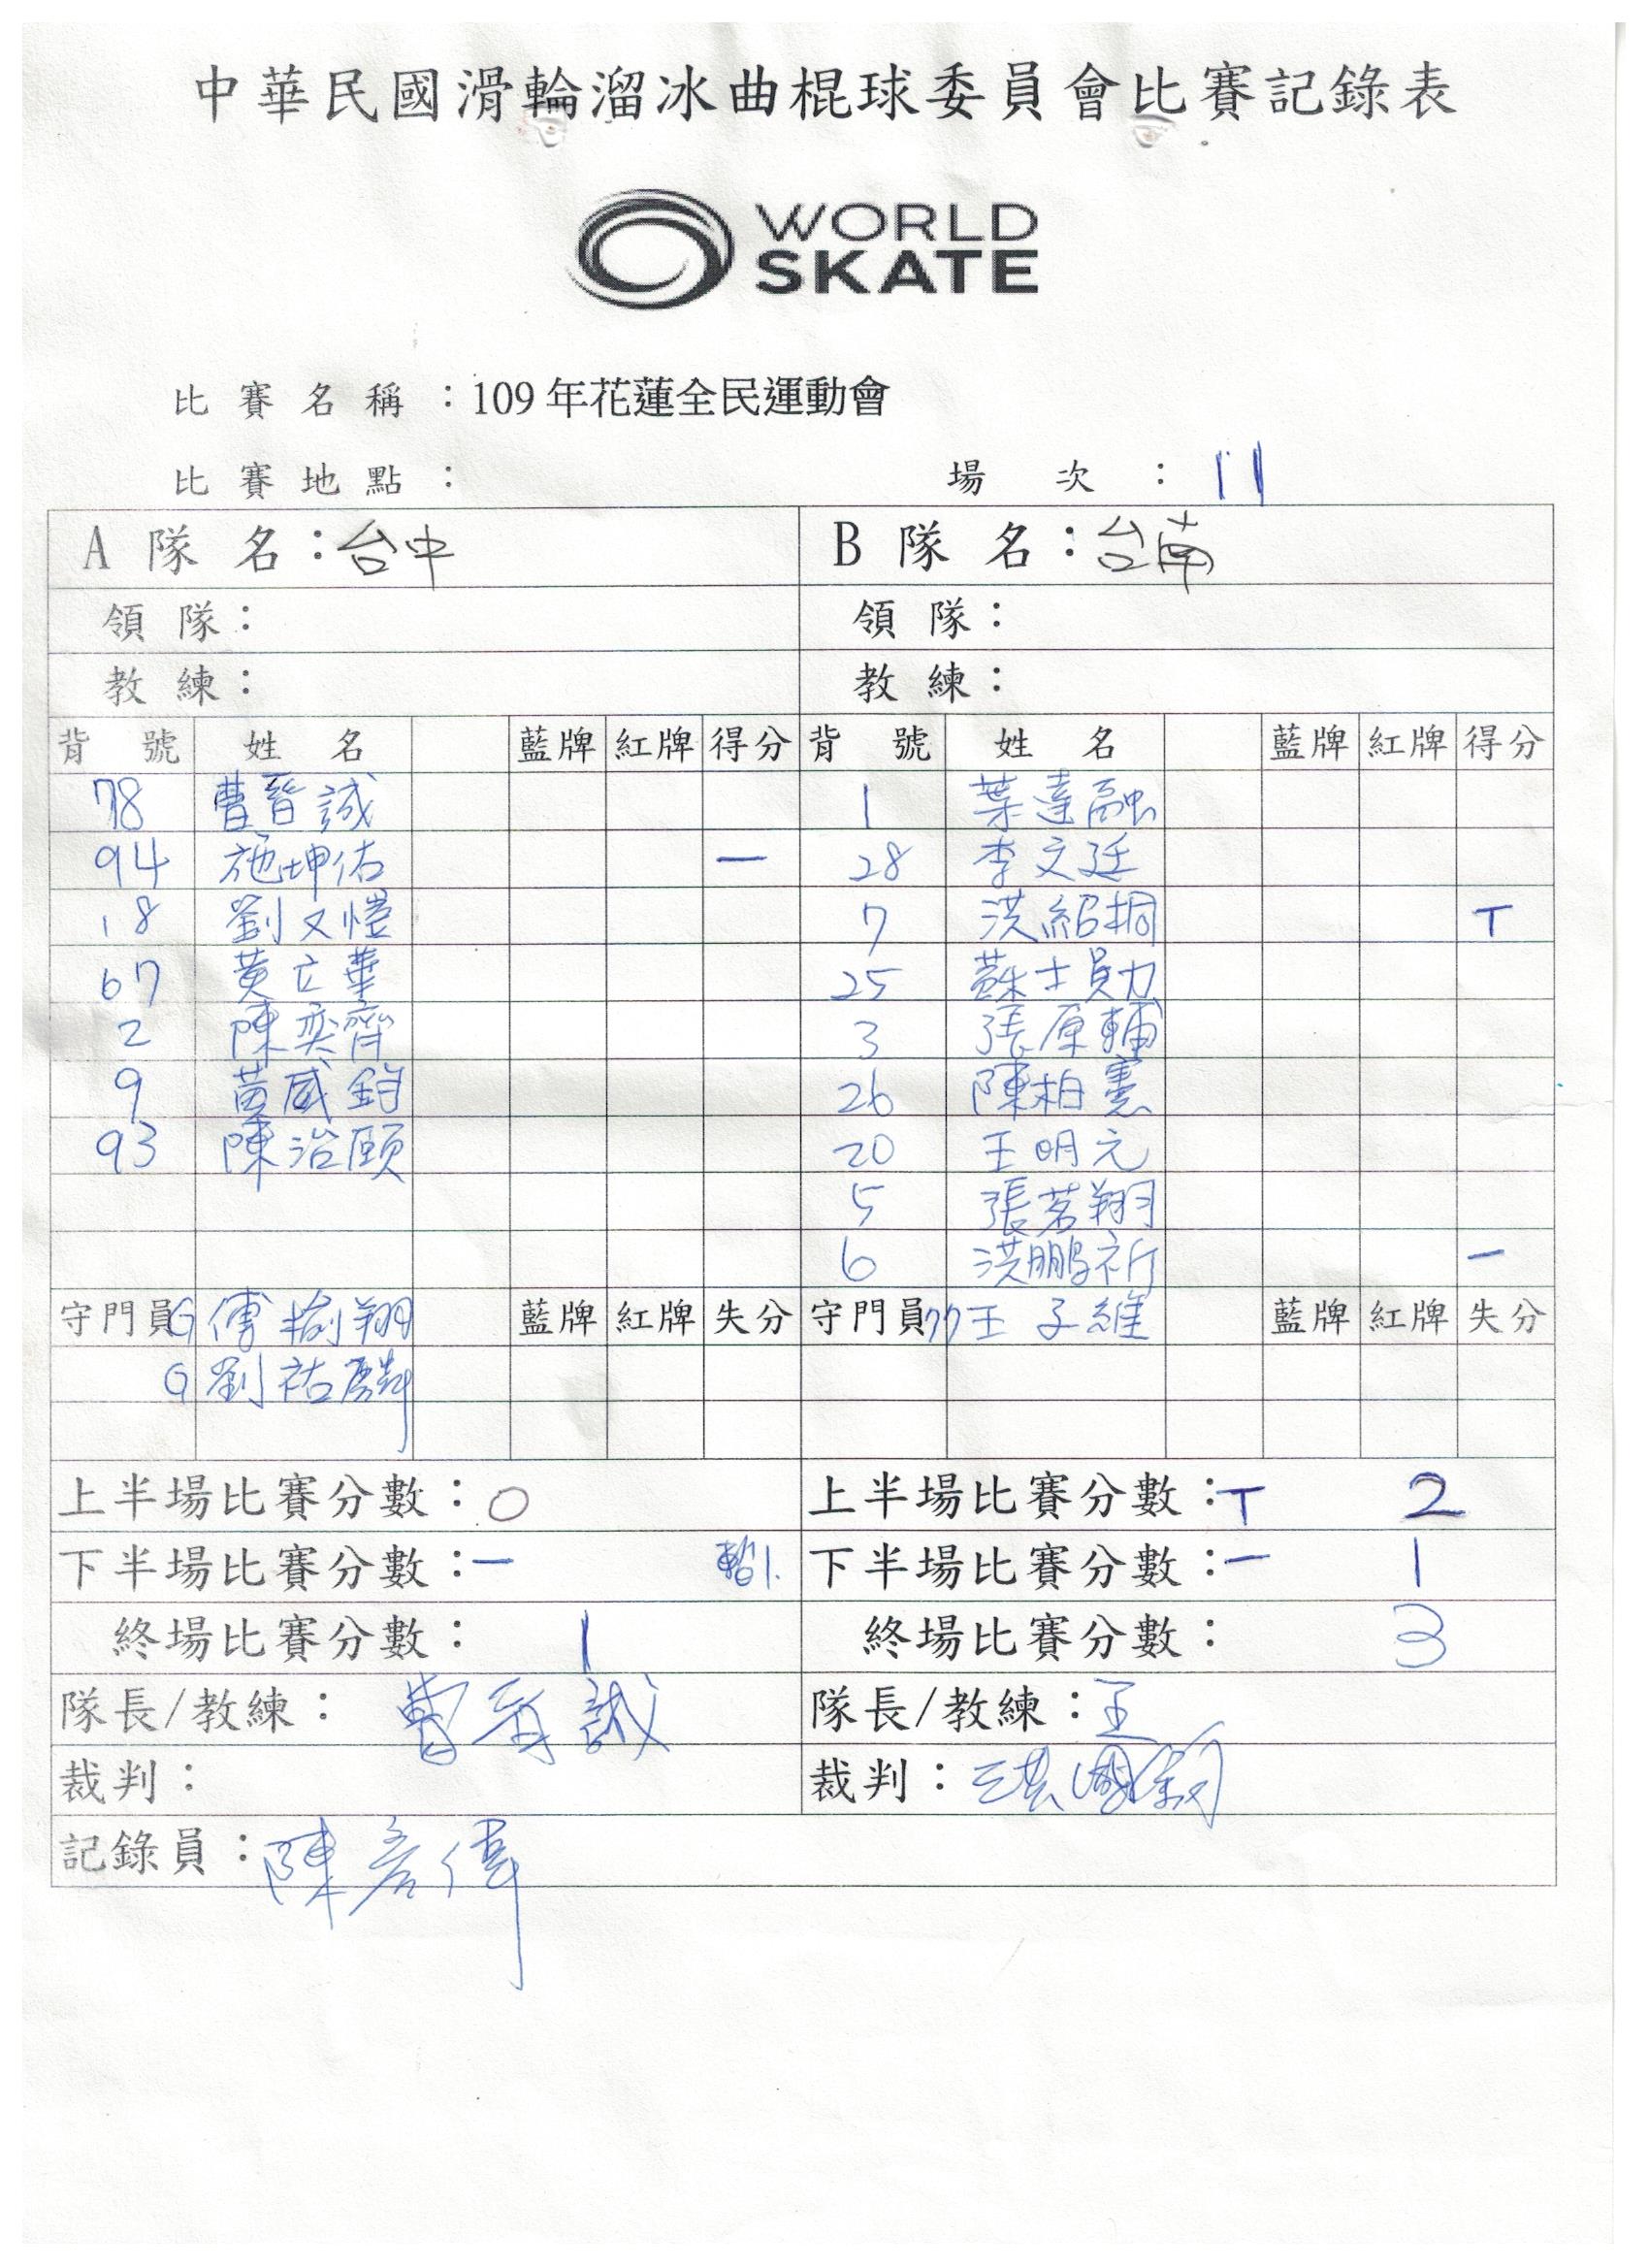 中華民國滑輪溜冰曲棍球委員會比賽記錄表
WORLD
SKATE
比賽名稱：109年花蓮全民運動會
比賽地點： 場次：11
A隊名：台中 B隊名：台南
領隊： 領隊：
教練： 教練：
背號 姓名 藍牌 紅牌 得分 背號 姓名 藍牌 紅牌 得分
78 曹晉誠 1 葉達融
94 施坤佑 一 28 李文廷
18 劉又愷 7 洪紹桐 T
67 黃立華 25 蘇士勛
2 陳奕齊 3 張原輔
9 黃威鈞 26 陳柏憲
93 陳治頤 20 王明元
5 張茗翔
6 洪鵬祈 一
守門員G 傅榆翔 藍牌 紅牌 失分 守門員77 王子維 藍牌 紅牌 失分
G 劉祐麟
上半場比賽分數：0 上半場比賽分數：T 2
下半場比賽分數：一 下半場比賽分數：一 1
終場比賽分數：1 終場比賽分數：3
隊長/教練：曹晉誠 隊長/教練：王
裁判： 裁判：
記錄員：陳彥偉